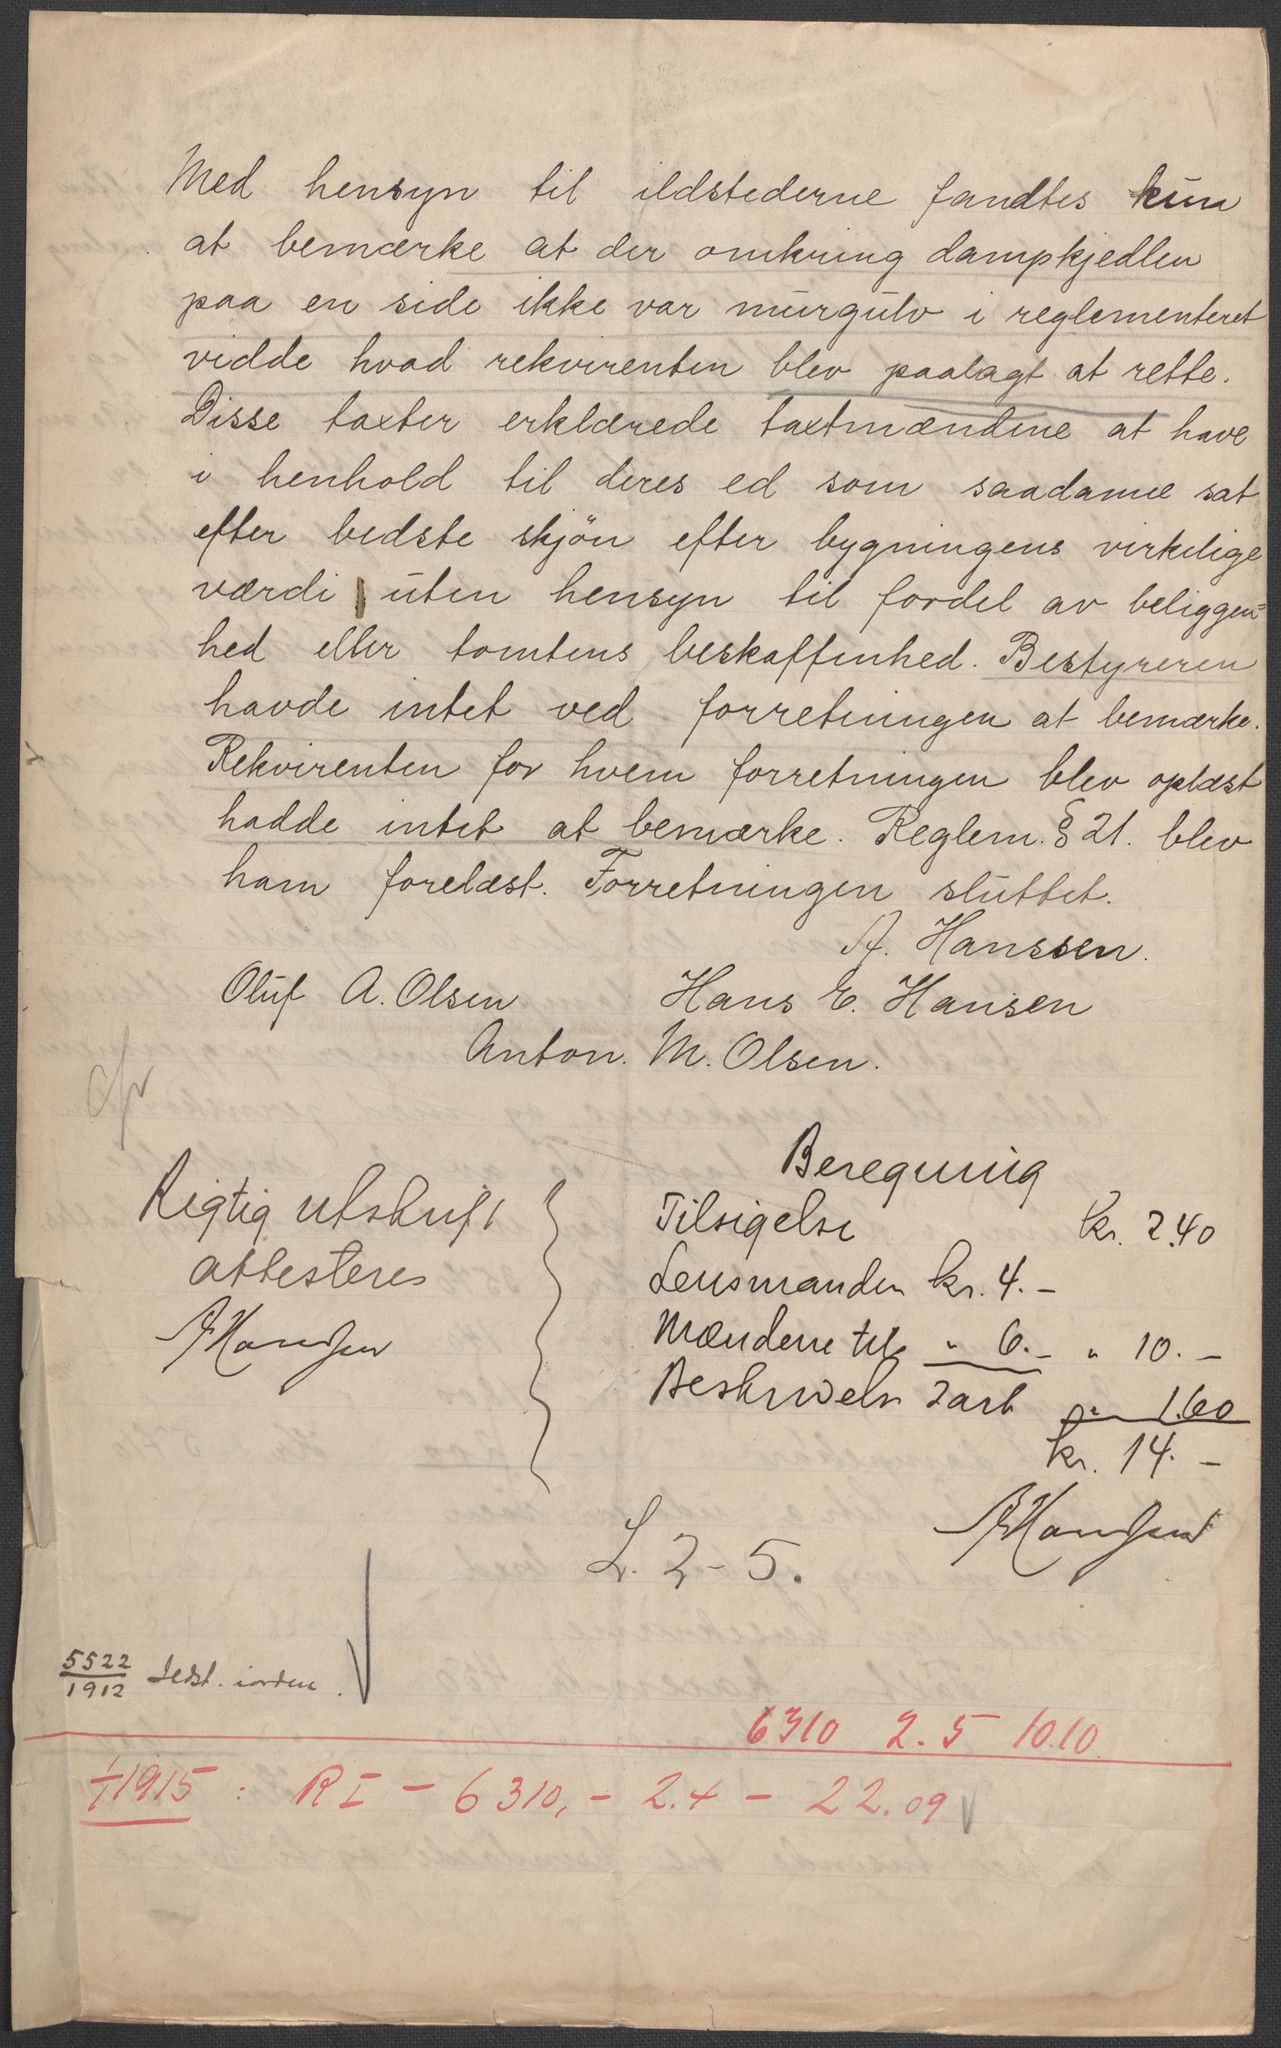 Med hensyn til ildstederne fandtes kun
at bemærke at der omkring dampkjedlen
paa en side ikke var murgulv i reglementeret
vidde hvad rekvirenten blev paalagt at rette.
Disse taxter erklærede taxtmændene at have
i henhold til deres ed som saadanne sat
efter bedste skjön efter bygningens virkelige
værdi uten hensyn til fordel av beliggen=
hed eller tomtens beskaffenhed. Bestyreren
havde intet ved forretningen at bemærke.
Rekvirenten for hvem forretningen blev oplæst
hadde intet at bemærke. Reglem. § 21. blev
ham forelæst. Forretningen sluttet.
A. Hanssen.
Oluf A. Olsen Hans E. Hansen
Anton. M. Olsen.
cfr
Rigtig utskrift
attesteres
AHanssen
Beregning
Tilsigelse kr. 2.40
Lensmanden kr. 4.-
Mændene til " 6.- " 10.-
Beskrivelse 2 ark " 1.60
kr. 14.-
AHanssen
L. 2-5.
5522
1912 Ildst. iorden.
6310 2.5 10.10
1/1 1915 : R I - 6310,- 2.4 - 22.09